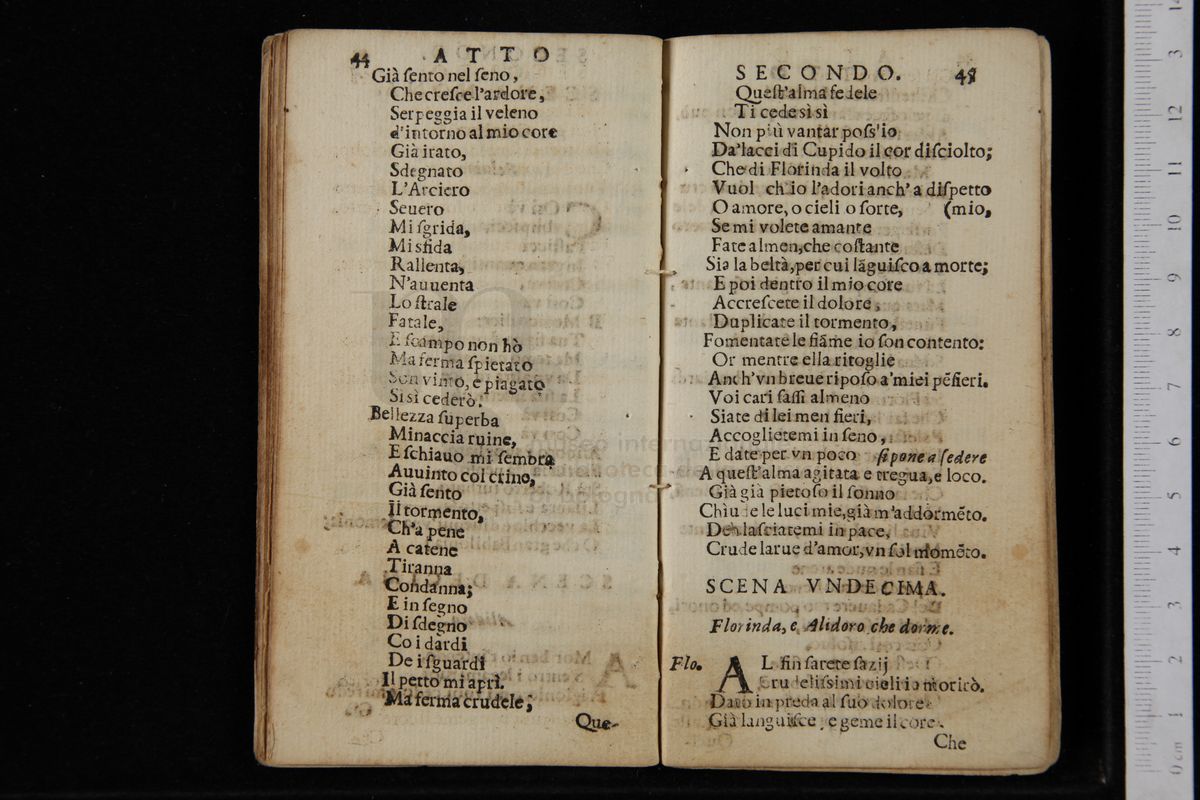 44 ATTO
Già ſento nel ſeno,
Che creſce l'ardore,
Serpeggia il veleno
d'intorno al mio core
Già irato,
Sdegnato
L'Arciero
Seuero
Mi ſgrida,
Mi sfida
Rallenta,
N'auuenta
Lo ſtrale
Fatale,
E ſcampo non hò
Ma ferma ſpietato
Son vinto, e piagato
Si sì cederò:
Bellezza ſuperba
Minaccia ruine,
E ſchiauo mi ſembra
Auuinto col crino,
Già ſento
Il tormento,
Ch'a pene
A catene
Tiranna
Condanna;
E in ſegno
Di ſdegno
Co i dardi
De i ſguardi
Il petto mi aprì.
Ma ferma crudele;
Que-
SECONDO. 45
Queſt'alma fedele
Ti cede sì sì
Non più vantar poſs'io
Da'lacci di Cupido il cor diſciolto;
Che di Florinda il volto
Vuol ch'io l'adori anch' a diſpetto
O amore, o cieli o ſorte, (mio,
Se mi volete amante
Fate almen,che coſtante
Sia la beltà,per cui lãguiſco a morte;
E poi dentro il mio core
Accreſcete il dolore,
Duplicate il tormento,
Fomentate le fiãme io ſon contento:
Or mentre ella ritoglie
Anch'vn breue ripoſo a'miei pẽſieri.
Voi cari ſaſſi almeno
Siate di lei men fieri,
Accoglietemi in ſeno,
E date per vn poco ſi pone a ſedere
A queſt'alma agitata e tregua,e loco.
Già già pietoſo il ſonno
Chiude le luci mie,già m'addormẽto.
Deh laſciatemi in pace,
Crude larue d'amor,vn ſol momẽto.
SCENA VNDECIMA.
Florinda, e Alidoro che dorme.
Flo. AL fin ſarete ſazij
Crudeliſsimi cieli io morirò.
Dato in preda al ſuo dolore
Già languiſce, e geme il core.
Che